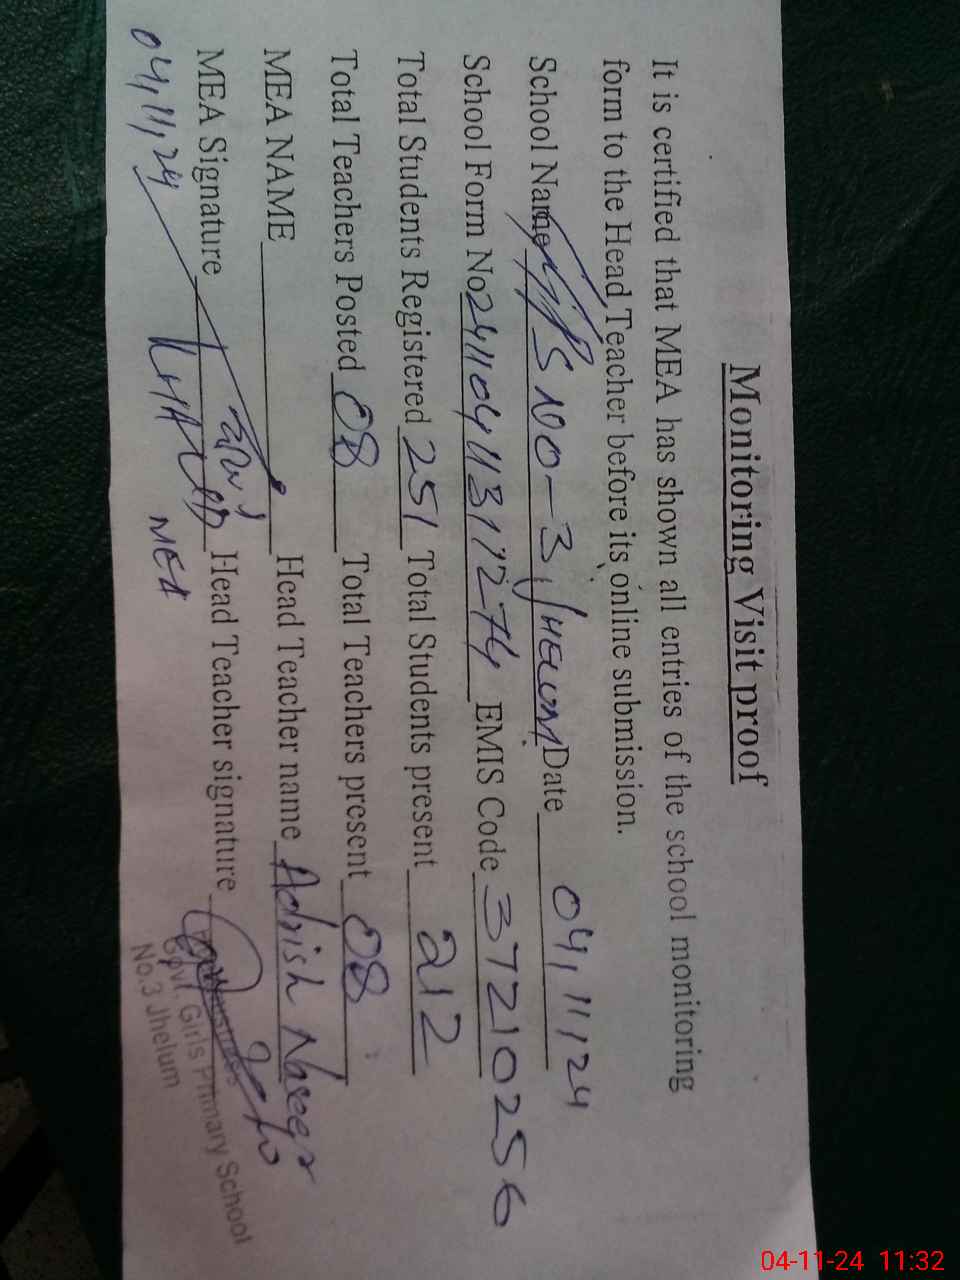 Monitoring Visit proof
It is certified that MEA has shown all entries of the school monitoring
form to the Head Teacher before its online submission.
School Name GGPS NO-3, JHELUM Date 04,11,24
School Form No 24110411317274 EMIS Code 37210256
Total Students Registered 251 Total Students present 212
Total Teachers Posted 08 Total Teachers present 08
MEA NAME Head Teacher name Adrish Naseer
MEA Signature Head Teacher signature
04,11,24 MEA
Govt. Girls Primary School
No.3 Jhelum
04-11-24 11:32